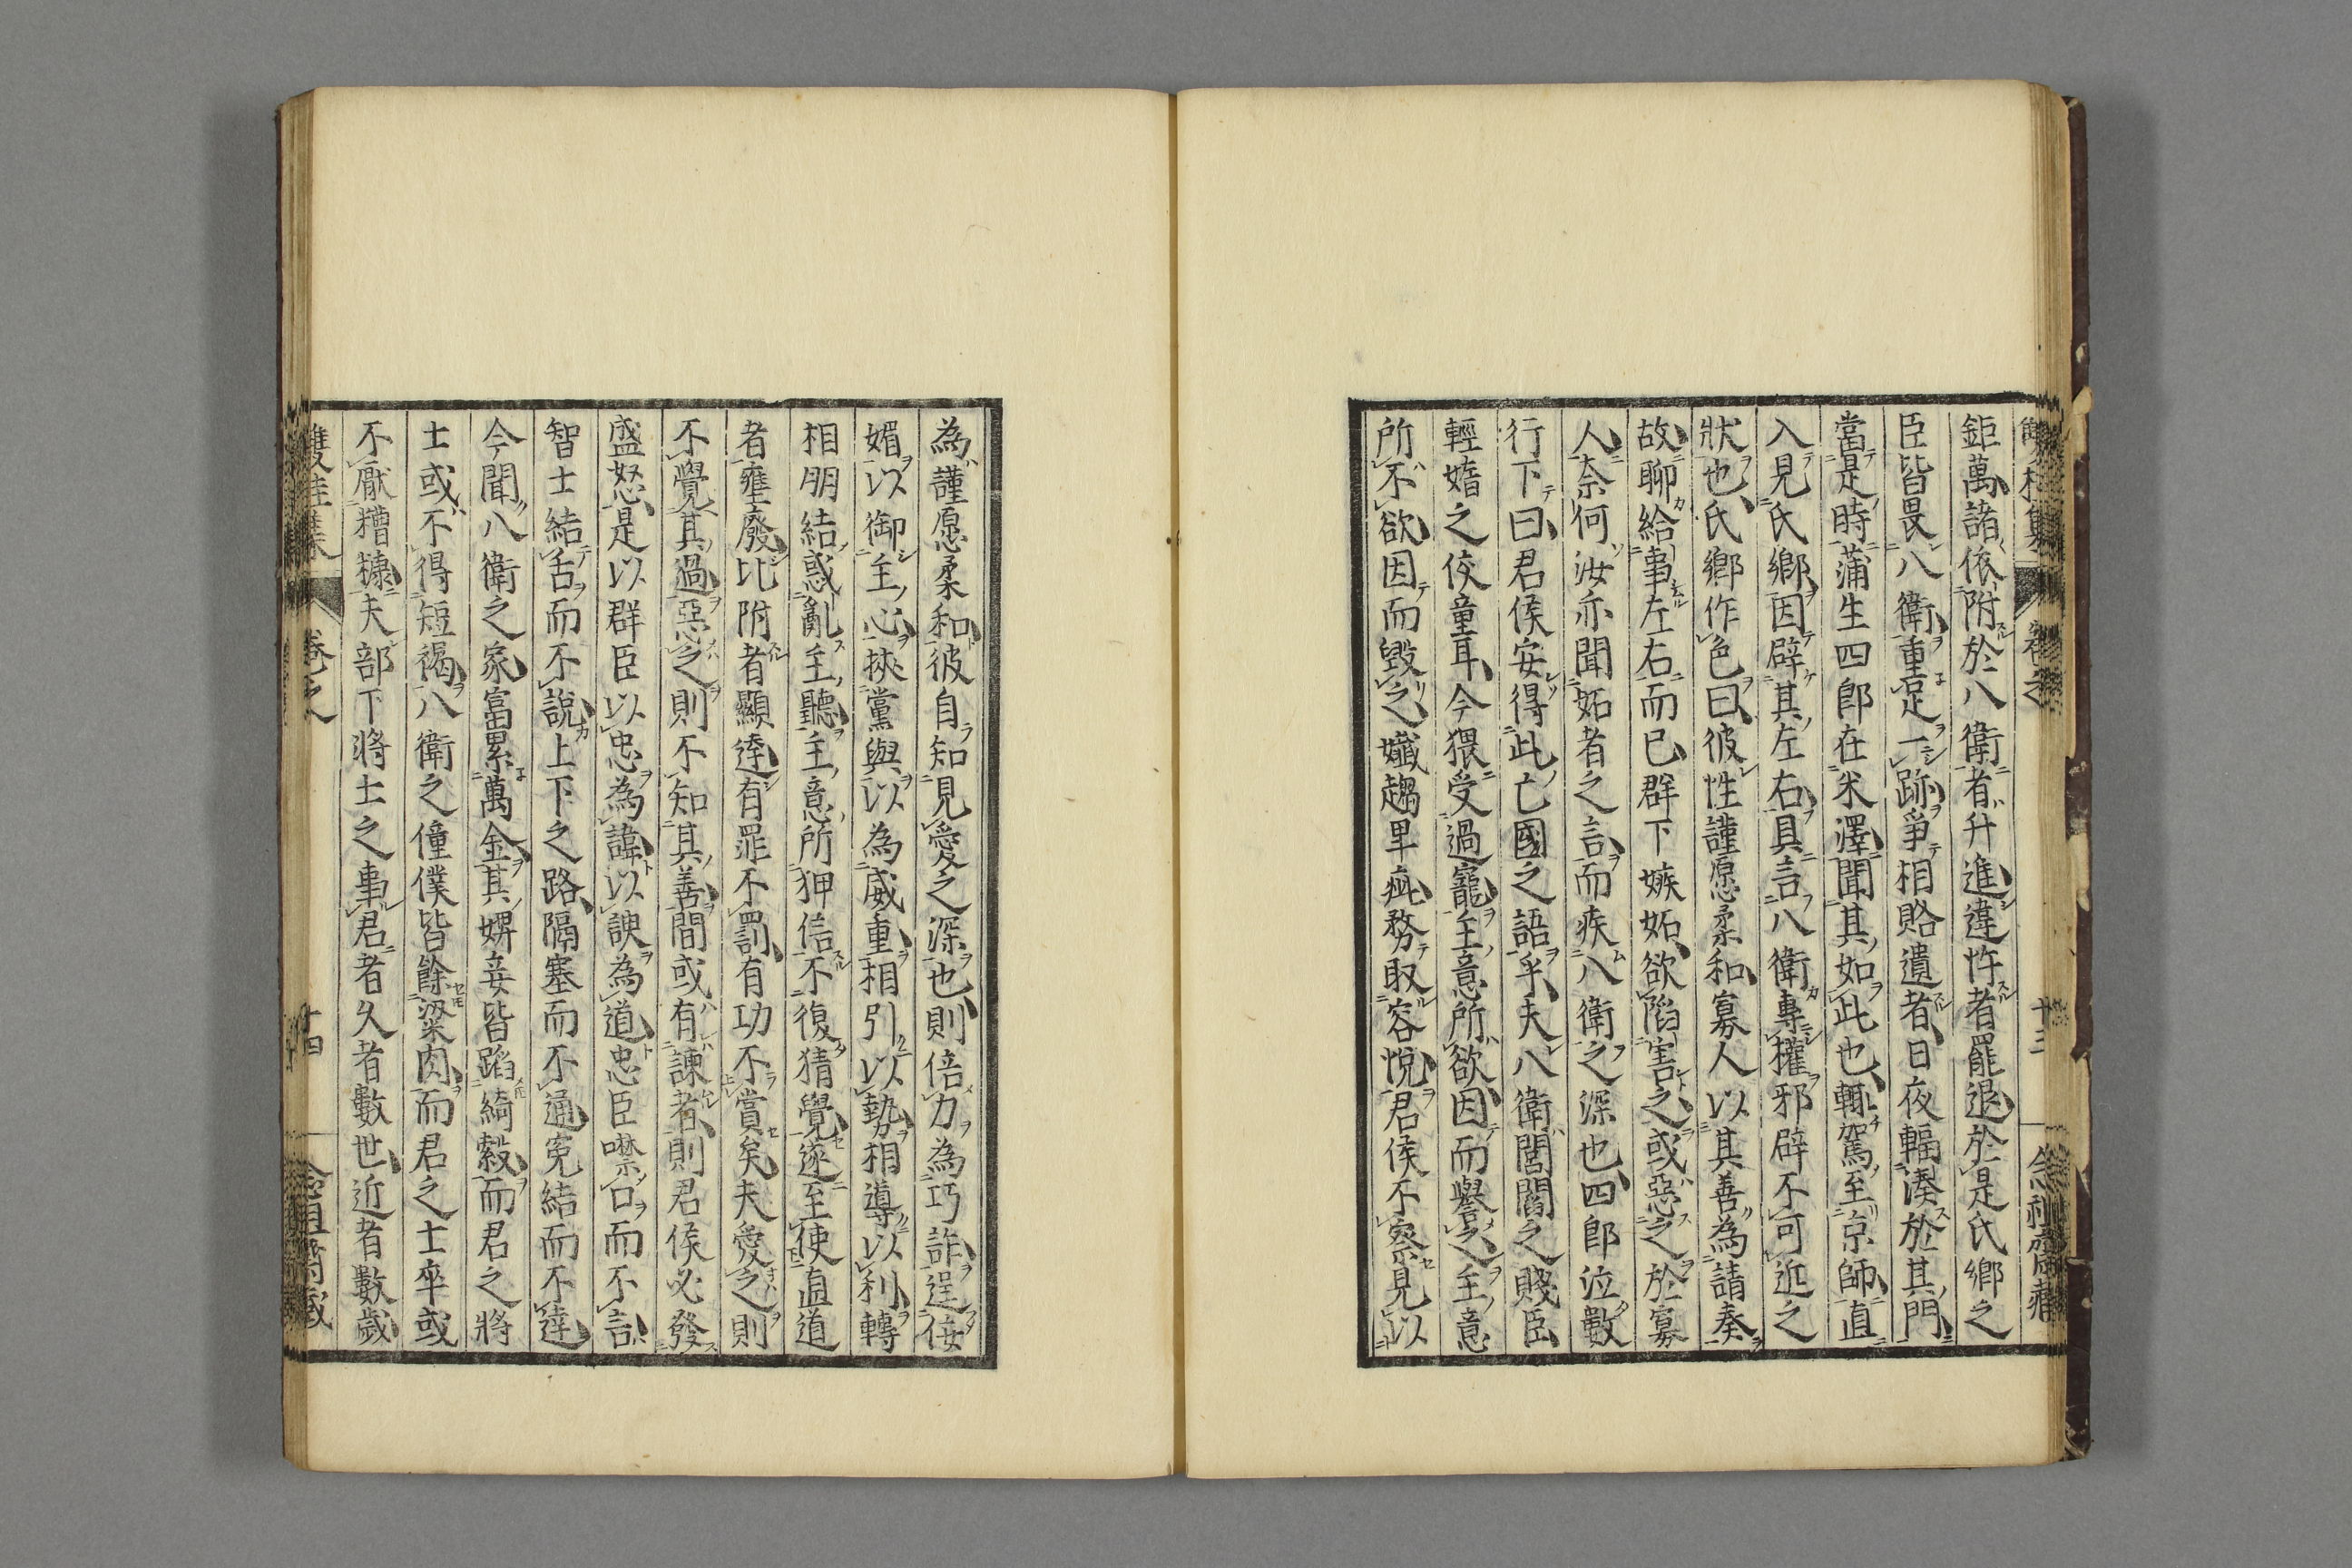 鉅萬諸依附於八衛者升進違忤者罷退於是氏鄉之
臣皆畏八衛重足一跡爭相賂遺者日夜輻湊於其門
當是時蒲生四郎在米澤聞其如此也輙駕至京師直
入見氏鄉因辟其左右具言八衛專權邪辟不可近之
狀也氏鄉作色曰彼性謹愿柔和寡人以其善為請奏
故聊給事左右而已群下嫉妬欲陷害之或惡之於寡
人奈何汝亦聞妬者之言而疾八衛之深也四郎泣數
行下曰君侯安得此亡國之語乎夫八衛閭閻之賤臣
輕媠之佼童耳今猥受過寵主意所欲因而譽之主意
所不欲因而毀之孅趨卑疵務取容悅君侯不察見以
為謹愿柔和彼自知見愛之深也則倍力為巧詐逞佞
媚以御主心挾黨與以為威重相引以勢相導以利轉
相朋結惑亂主聽主意所狎信不復猜覺遂至使直道
者壅廢比附者顯達有罪不罰有功不賞矣夫愛之則
不覺其過惡之則不知其善間或有諫者則君侯必發
盛怒是以群臣以忠為諱以諛為道忠臣噤口而不言
智士結舌而不說上下之路隔塞而不通寃結而不達
今聞八衛之家富累萬金其婢妾皆蹈綺縠而君之將
士或不得短褐八衛之僮僕皆餘粱肉而君之士卒或
不厭糟糠夫部下將士之事君者久者數世近者數歲
雙桂集
卷之
十四